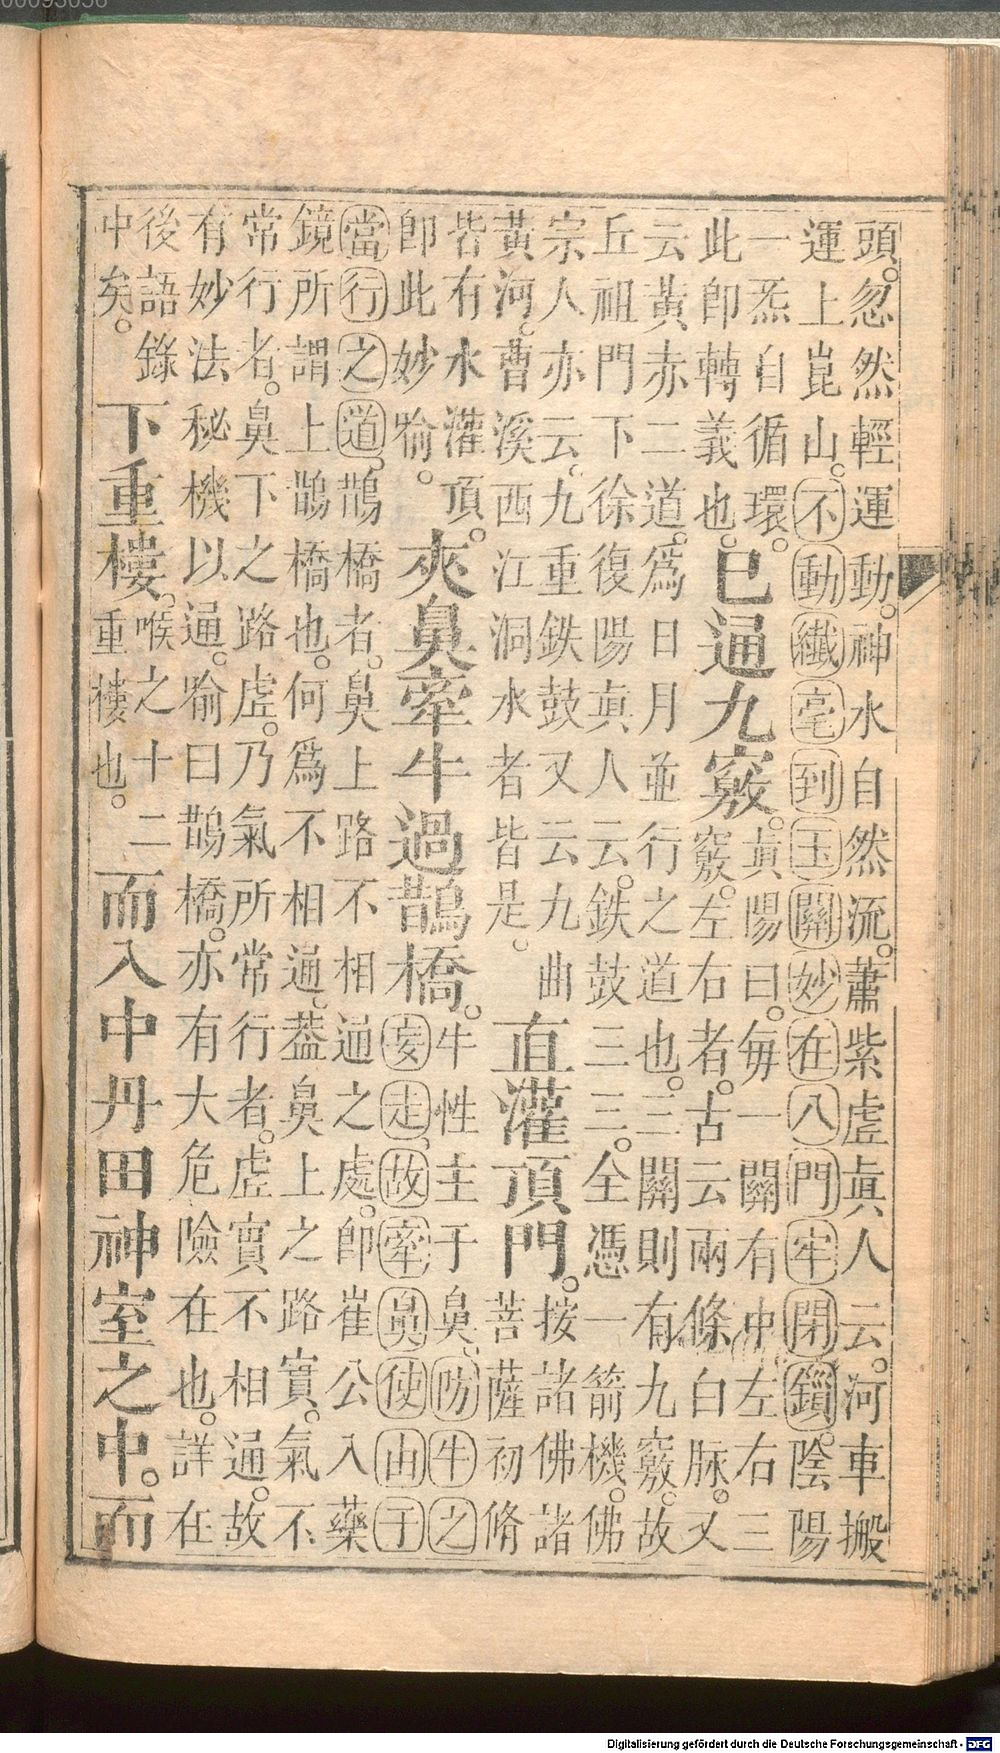 頭。忽然輕運動。神水自然流。蕭紫虛眞人云。河車搬
運上崑山。不動纖毫到玉關妙在八門牢閉鎻。陰陽
一炁自循環。
此卽轉義也。
已通九竅。
眞陽曰。每一關有中左右三
竅。左右者。古云兩條白脉。又
云黃赤二道。爲日月並行之道也。三關則有九竅。故
丘祖門下徐復陽眞人云。鉄鼓三三。全憑一箭機。佛
宗人亦云。九重鉄鼓又云九曲
黃河。曹溪西江洞水者皆是。
直灌頂門。
按諸佛諸
菩薩初脩
皆有水灌頂。
卽此妙喻。
夾鼻牽牛過鵲橋。
牛性主于鼻。防牛之
妄走。故牽鼻使由于
當行之道。鵲橋者。鼻上路不相通之處。卽崔公入藥
鏡所謂上鵲橋也。何爲不相通。葢鼻上之路實。氣不
常行者。鼻下之路虛。乃氣所常行者。虛實不相通。故
有妙法秘機以通。喻曰鵲橋。亦有大危險在也。詳在
後語錄
中矣。
下重樓。
喉之十二
重樓也。
而入中丹田神室之中。而
Digitalisierung gefördert durch die Deutsche Forschungsgemeinschaft - DFG